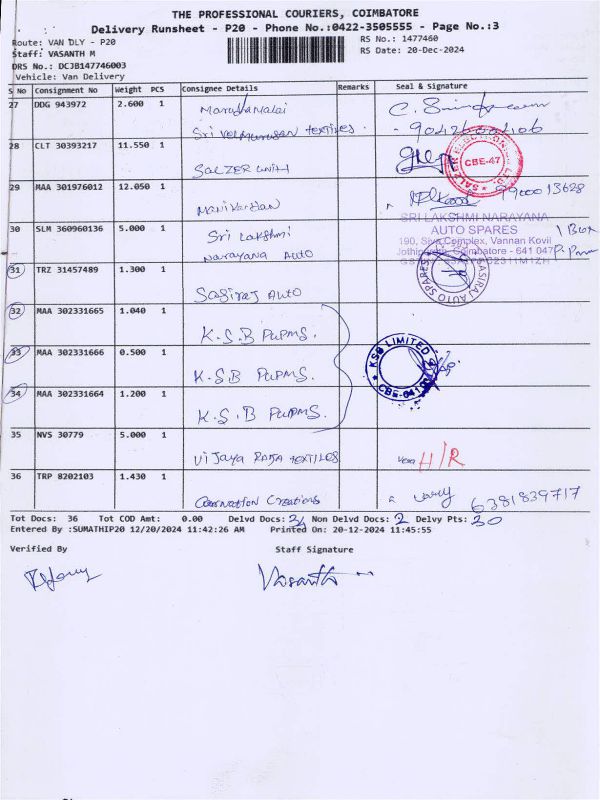 THE PROFESSIONAL COURIERS, COIMBATORE
Delivery Runsheet - P20 - Phone No.:0422-3505555 - Page No.:3
Route: VAN DLY - P20
RS No.: 1477460
Staff: VASANTH M
RS Date: 20-Dec-2024
DRS No.: DCJB147746003
Vehicle: Van Delivery
S No Consignment No Weight PCS Consignee Details Remarks Seal & Signature
27 DDG 943972 2.600 1 Marudhamalai
Sri Velmurugan Textiles.
28 CLT 30393217 11.550 1
CBE-47
Salzer Unit I
29 MAA 301976012 12.050 1
9900013628
Manikandan
30 SLM 360960136 5.000 1 Sri Lakshmi
Narayana Auto
SRI LAKSHMI NARAYANA
AUTO SPARES
190, Siva Complex, Vannan Kovil
1 Box
31 TRZ 31457489 1.300 1
Sasiraj Auto
SASIRAJ AUTO SPARES
32 MAA 302331665 1.040 1
K.S.B Pumps.
33 MAA 302331666 0.500 1
K.S.B Pumps.
KSB LIMITED
34 MAA 302331664 1.200 1
K.S.B Pumps.
35 NVS 30779 5.000 1
Vijaya Raja Textiles
H/R
36 TRP 8202103 1.430 1
Coronation Creations
6381839717
Tot Docs: 36 Tot COD Amt: 0.00 Delvd Docs: 34 Non Delvd Docs: 2 Delvy Pts: 30
Entered By :SUMATHIP20 12/20/2024 11:42:26 AM Printed On: 20-12-2024 11:45:55
Verified By Staff Signature
Vasanth